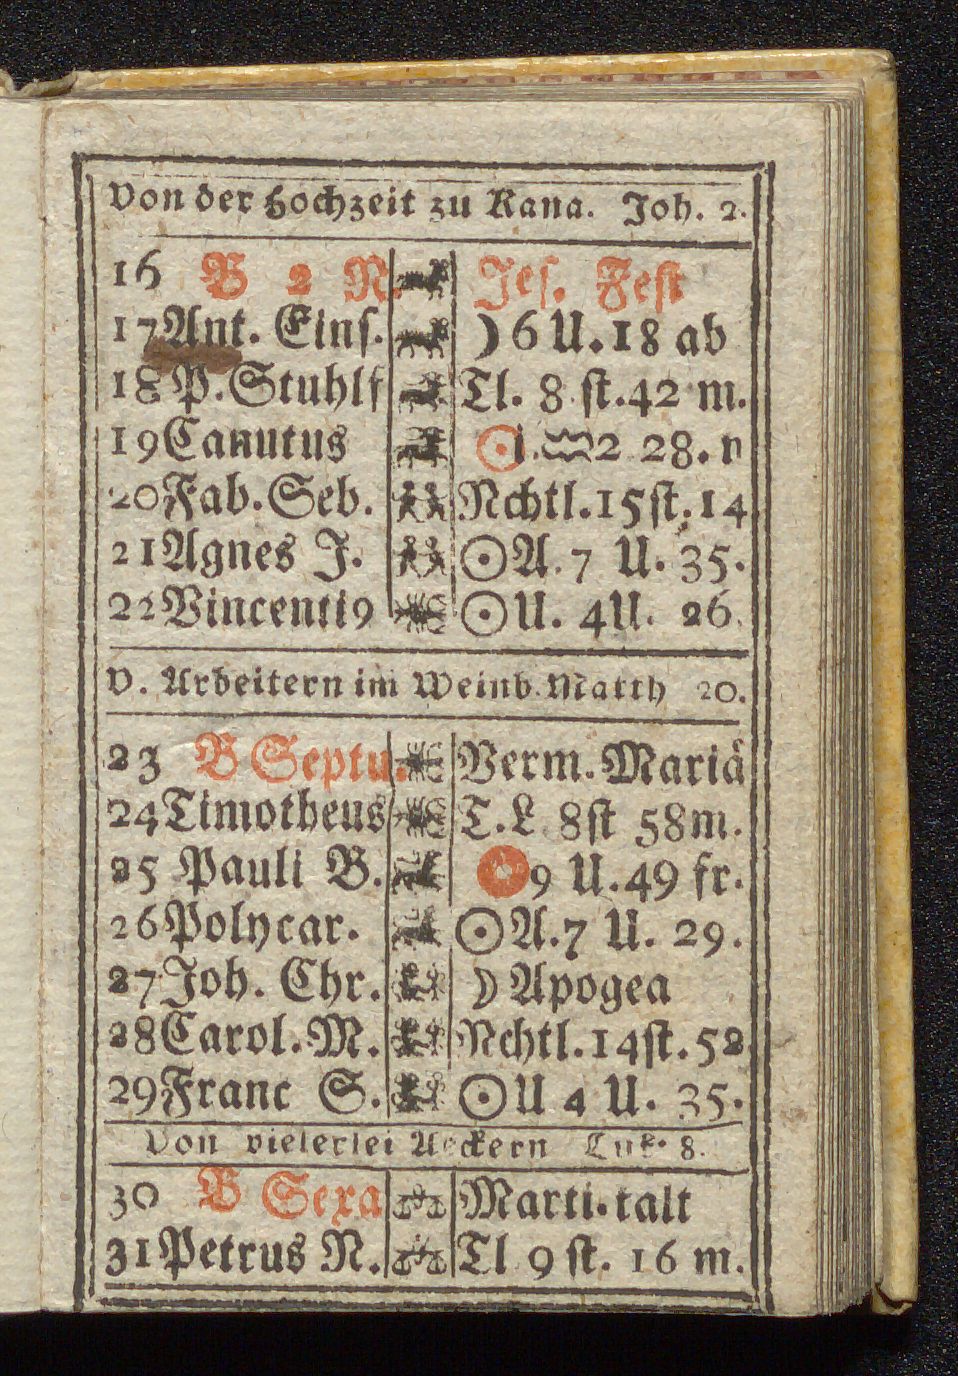 Von der Hochzeit zu Kana. Joh. 2.
16 B 2 N. Jes. Fest
17 Ant. Eins. ☽ 6 U. 18 ab
18 P. Stuhlf Tl. 8 st. 42 m.
19 Canutus ☉ i. ♒ 2 28. n
20 Fab. Seb. Nchtl. 15 st. 14
21 Agnes J. ☉ A. 7 U. 35.
22 Vincenti9 ☉ U. 4 U. 26.
V. Arbeitern im Weinb. Matth 20.
23 B Septu. Verm. Mariä
24 Timotheus T. L. 8 st 58 m.
25 Pauli B. 9 U. 49 fr.
26 Polycar. ☉ A. 7 U. 29.
27 Joh. Chr. ☽ Apogea
28 Carol. M. Nchtl. 14 st. 52
29 Franc S. ☉ U 4 U. 35.
Von vielerlei Aeckern Luk. 8.
30 B Sexa Marti. kalt
31 Petrus N. Tl 9 st. 16 m.